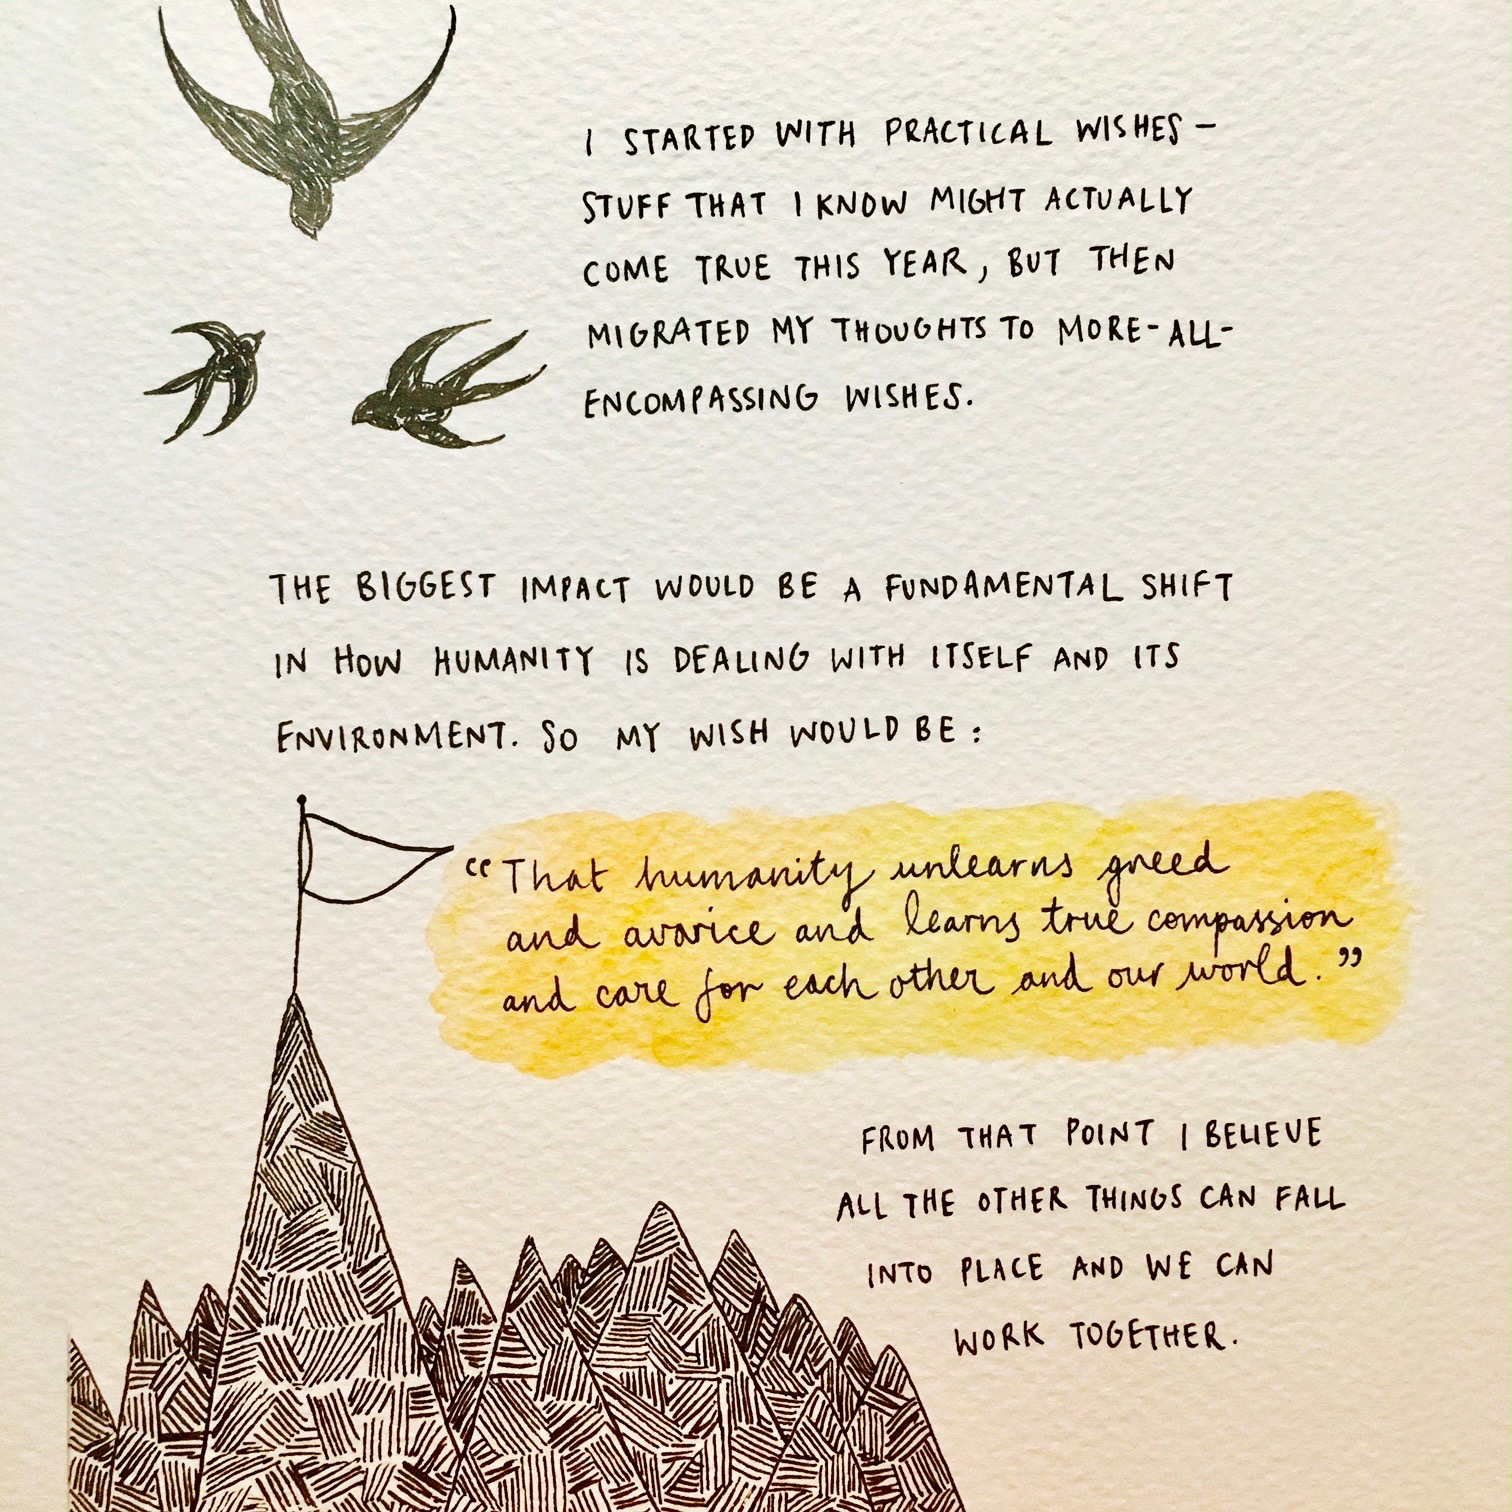 I STARTED WITH PRACTICAL WISHES –
STUFF THAT I KNOW MIGHT ACTUALLY
COME TRUE THIS YEAR, BUT THEN
MIGRATED MY THOUGHTS TO MORE-ALL-
ENCOMPASSING WISHES.
THE BIGGEST IMPACT WOULD BE A FUNDAMENTAL SHIFT
IN HOW HUMANITY IS DEALING WITH ITSELF AND ITS
ENVIRONMENT. SO MY WISH WOULD BE:
“That humanity unlearns greed
and avarice and learns true compassion
and care for each other and our world.”
FROM THAT POINT I BELIEVE
ALL THE OTHER THINGS CAN FALL
INTO PLACE AND WE CAN
WORK TOGETHER.